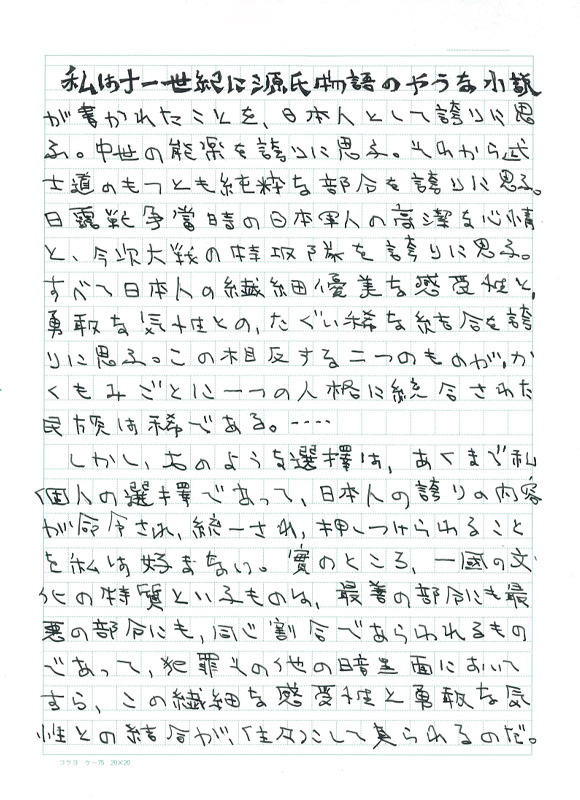 私は十一世紀に源氏物語のやうな小説
が書かれたことを、日本人として誇りに思
ふ。中世の能楽を誇りに思ふ。それから武
士道のもつとも純粋な部分を誇りに思ふ。
日露戦争當時の日本軍人の高潔な心情
と、今次大戦の特攻隊を誇りに思ふ。
すべて日本人の繊細優美な感受性と、
勇敢な気性との、たぐい稀な結合を誇
りに思ふ。この相反する二つのものが、か
くもみごとに一つの人格に統合された
民族は稀である。‥‥
しかし、右のような選擇は、あくまで私
個人の選擇であって、日本人の誇りの内容
が命令され、統一され、押しつけられること
を私は好まない。實のところ、一國の文
化の特質といふものは、最善の部分にも最
悪の部分にも、同じ割合であらわれるもの
であって、犯罪その他の暗黒面において
すら、この繊細な感受性と勇敢な気
性との結合が、往々にして見られるのだ。
コクヨ ケー75 20×20